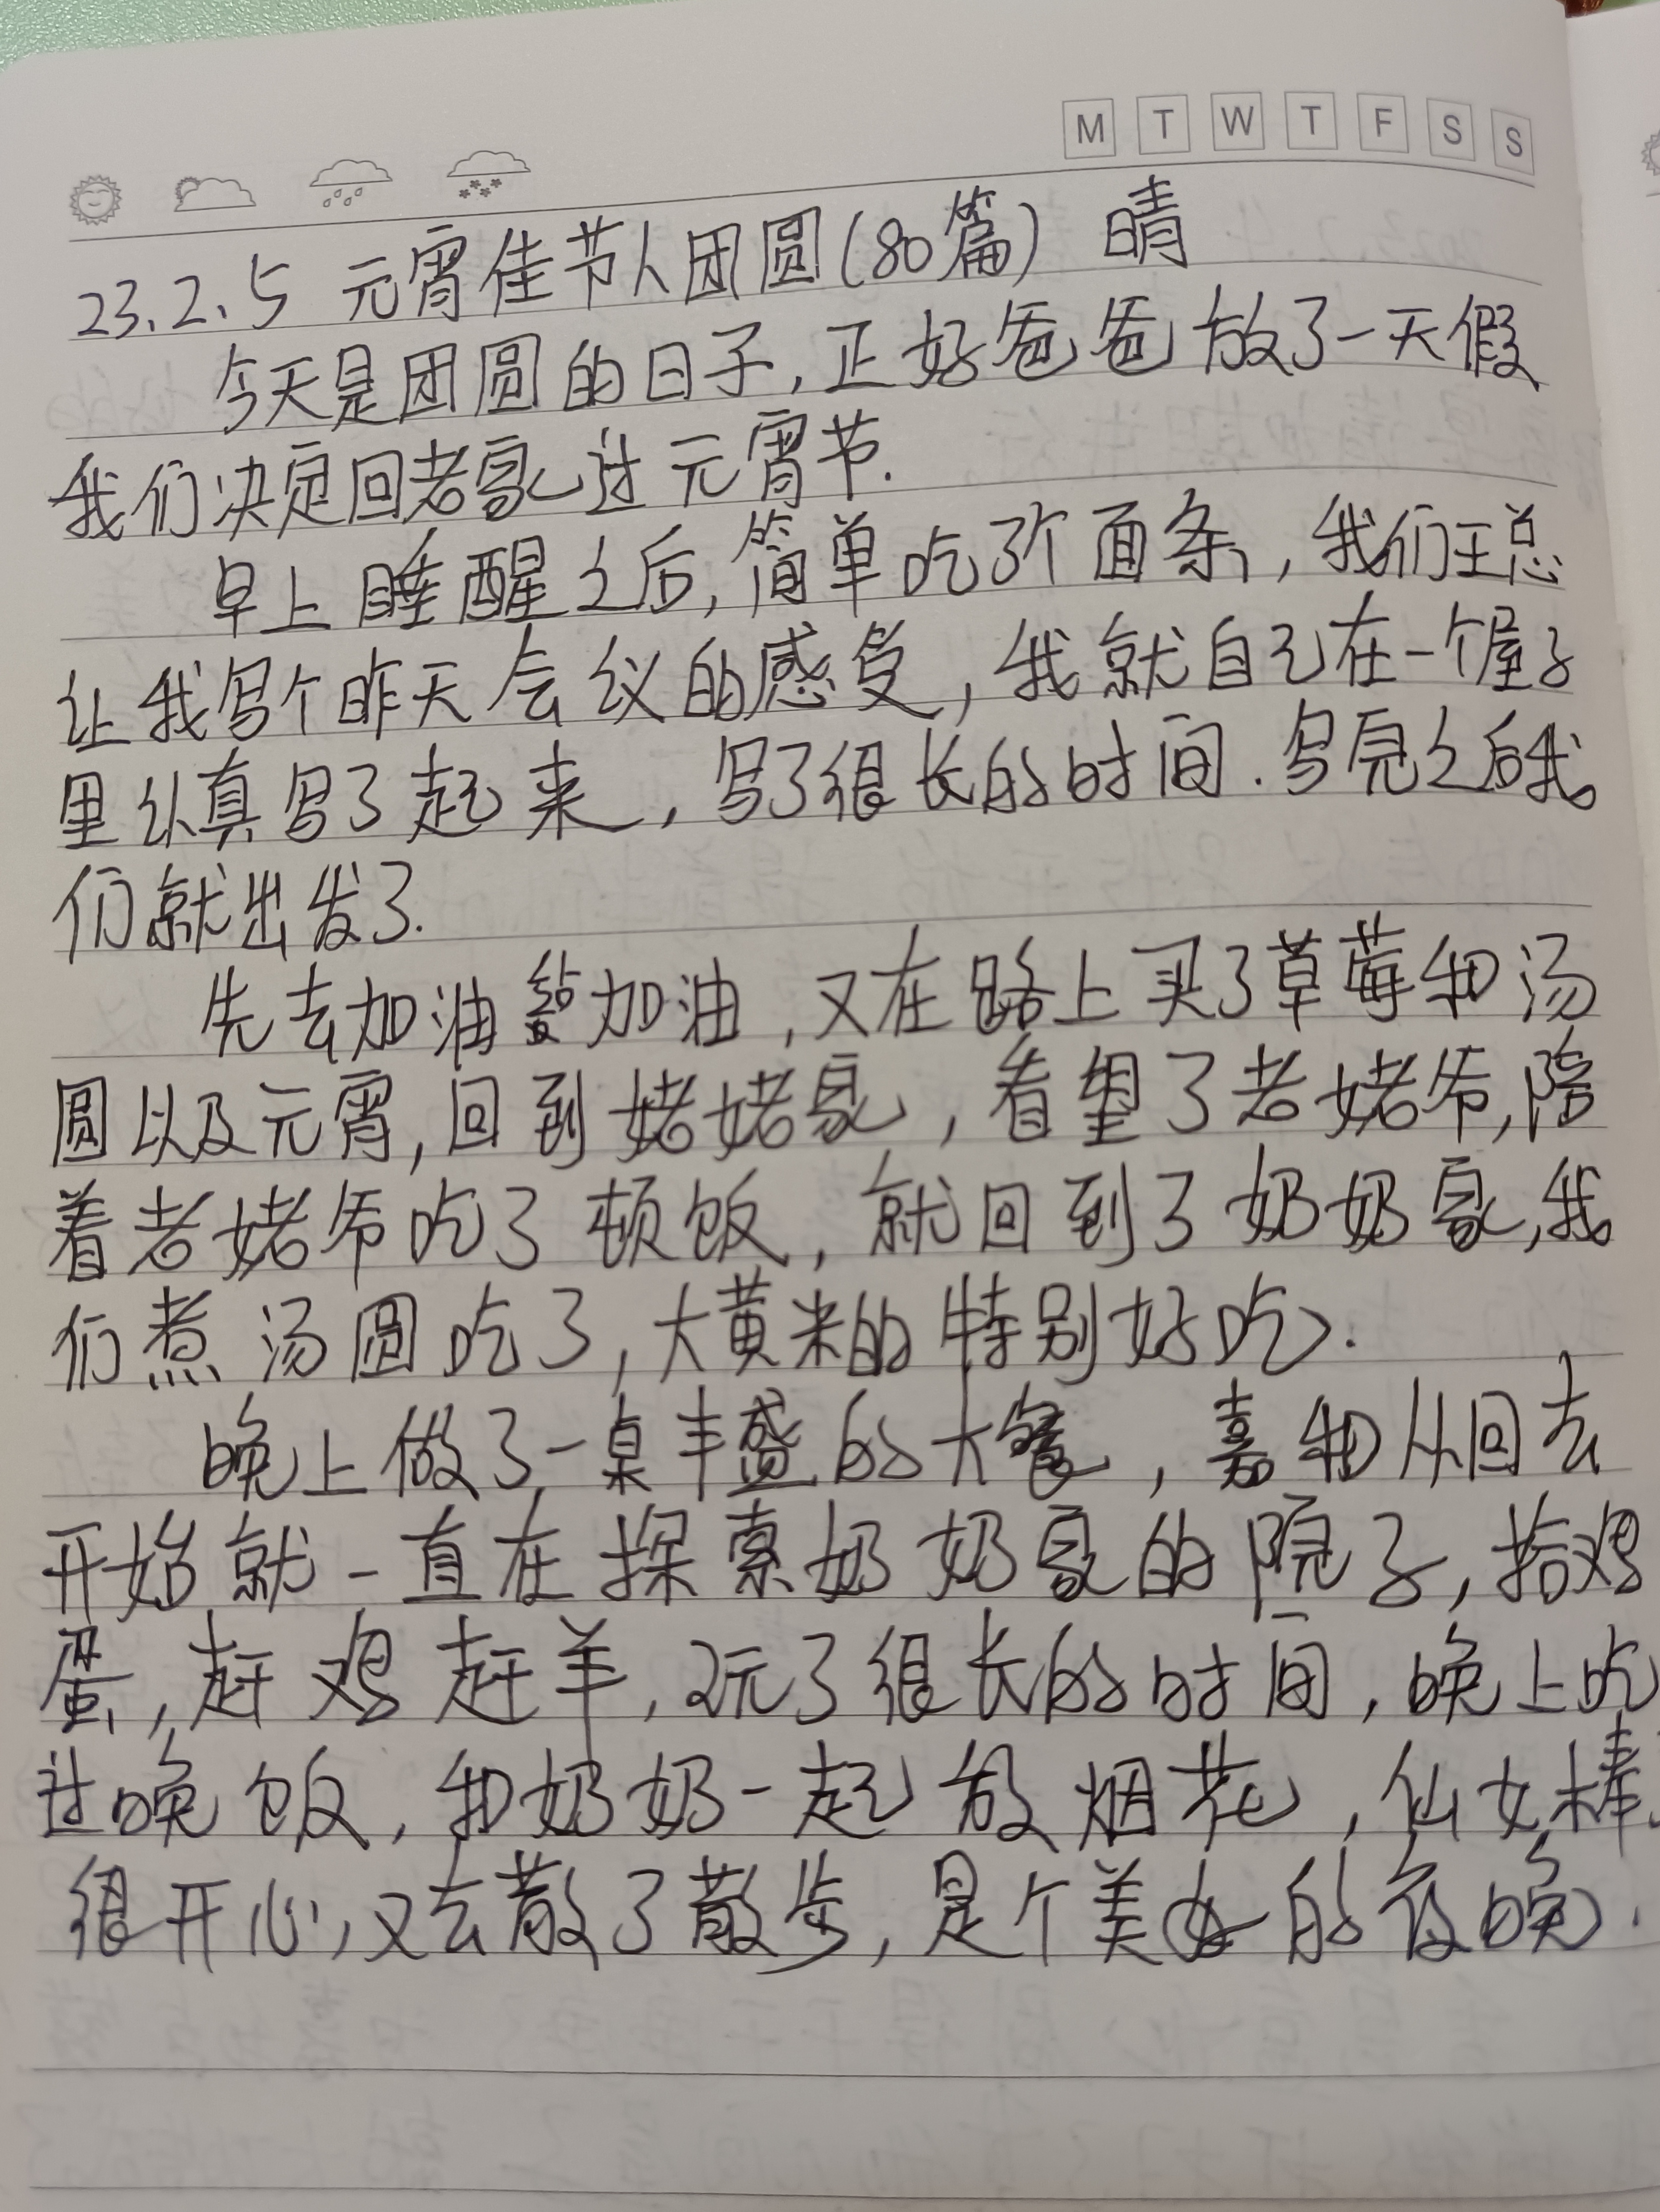 M T W T F S S
23.2.5 元宵佳节人团圆(80篇) 晴
今天是团圆的日子,正好爸爸放了一天假
我们决定回老家过元宵节.
早上睡醒之后,简单吃了个面条,我们王总
让我写个昨天会议的感受,我就自己在一个屋子
里认真写了起来,写了很长的时间.写完之后我
们就出发了.
先去加油站加油,又在路上买了草莓和汤
圆以及元宵,回到姥姥家,看望了老姥爷,陪
着老姥爷吃了顿饭,就回到了奶奶家,我
们煮汤圆吃了,大黄米的特别好吃.
晚上做了一桌丰盛的大餐,嘉和从回去
开始就一直在探索奶奶家的院子,拾鸡
蛋,赶鸡赶羊,玩了很长的时间,晚上吃
过晚饭,和奶奶一起放烟花,仙女棒
很开心,又去散了散步,是个美好的夜晚.